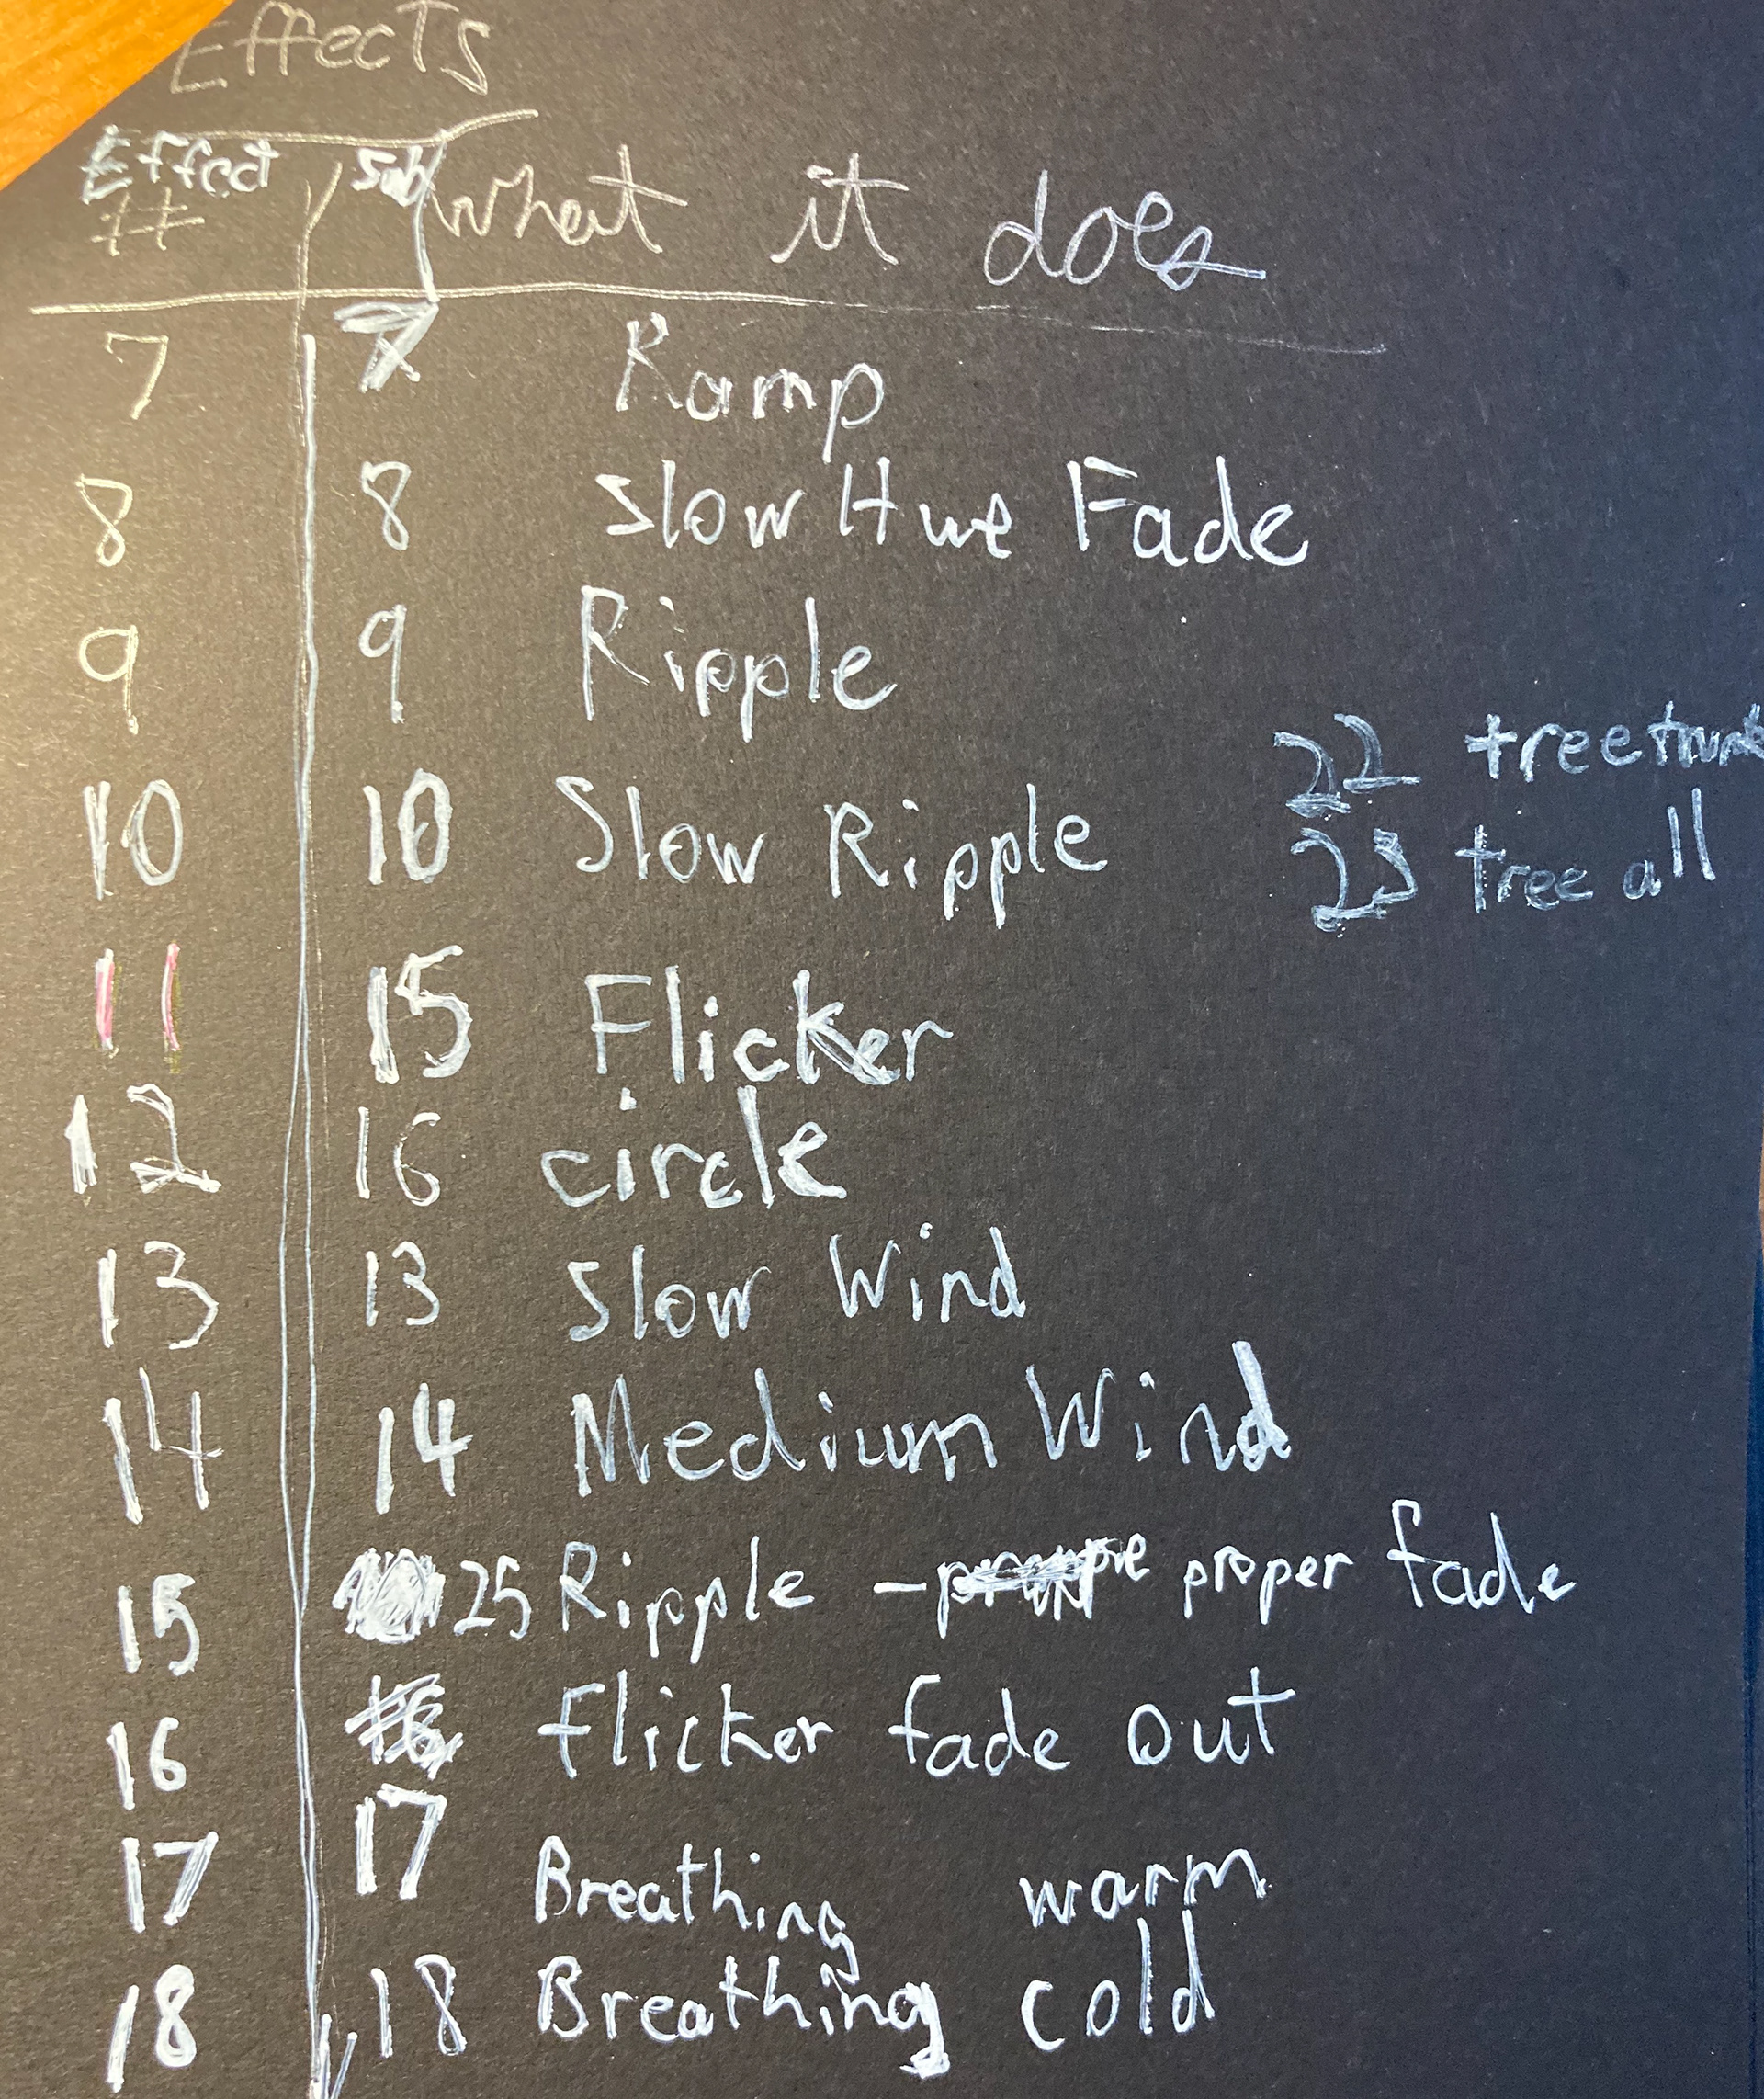 Effects
Effect # Sub What it does
7 7 Ramp
8 8 Slow Hue Fade
9 9 Ripple
22 treetrunk
10 10 Slow Ripple
23 tree all
11 15 Flicker
12 16 circle
13 13 Slow Wind
14 14 Medium Wind
15 25 Ripple - proper fade
16 flicker fade out
17 17 Breathing warm
18 18 Breathing cold